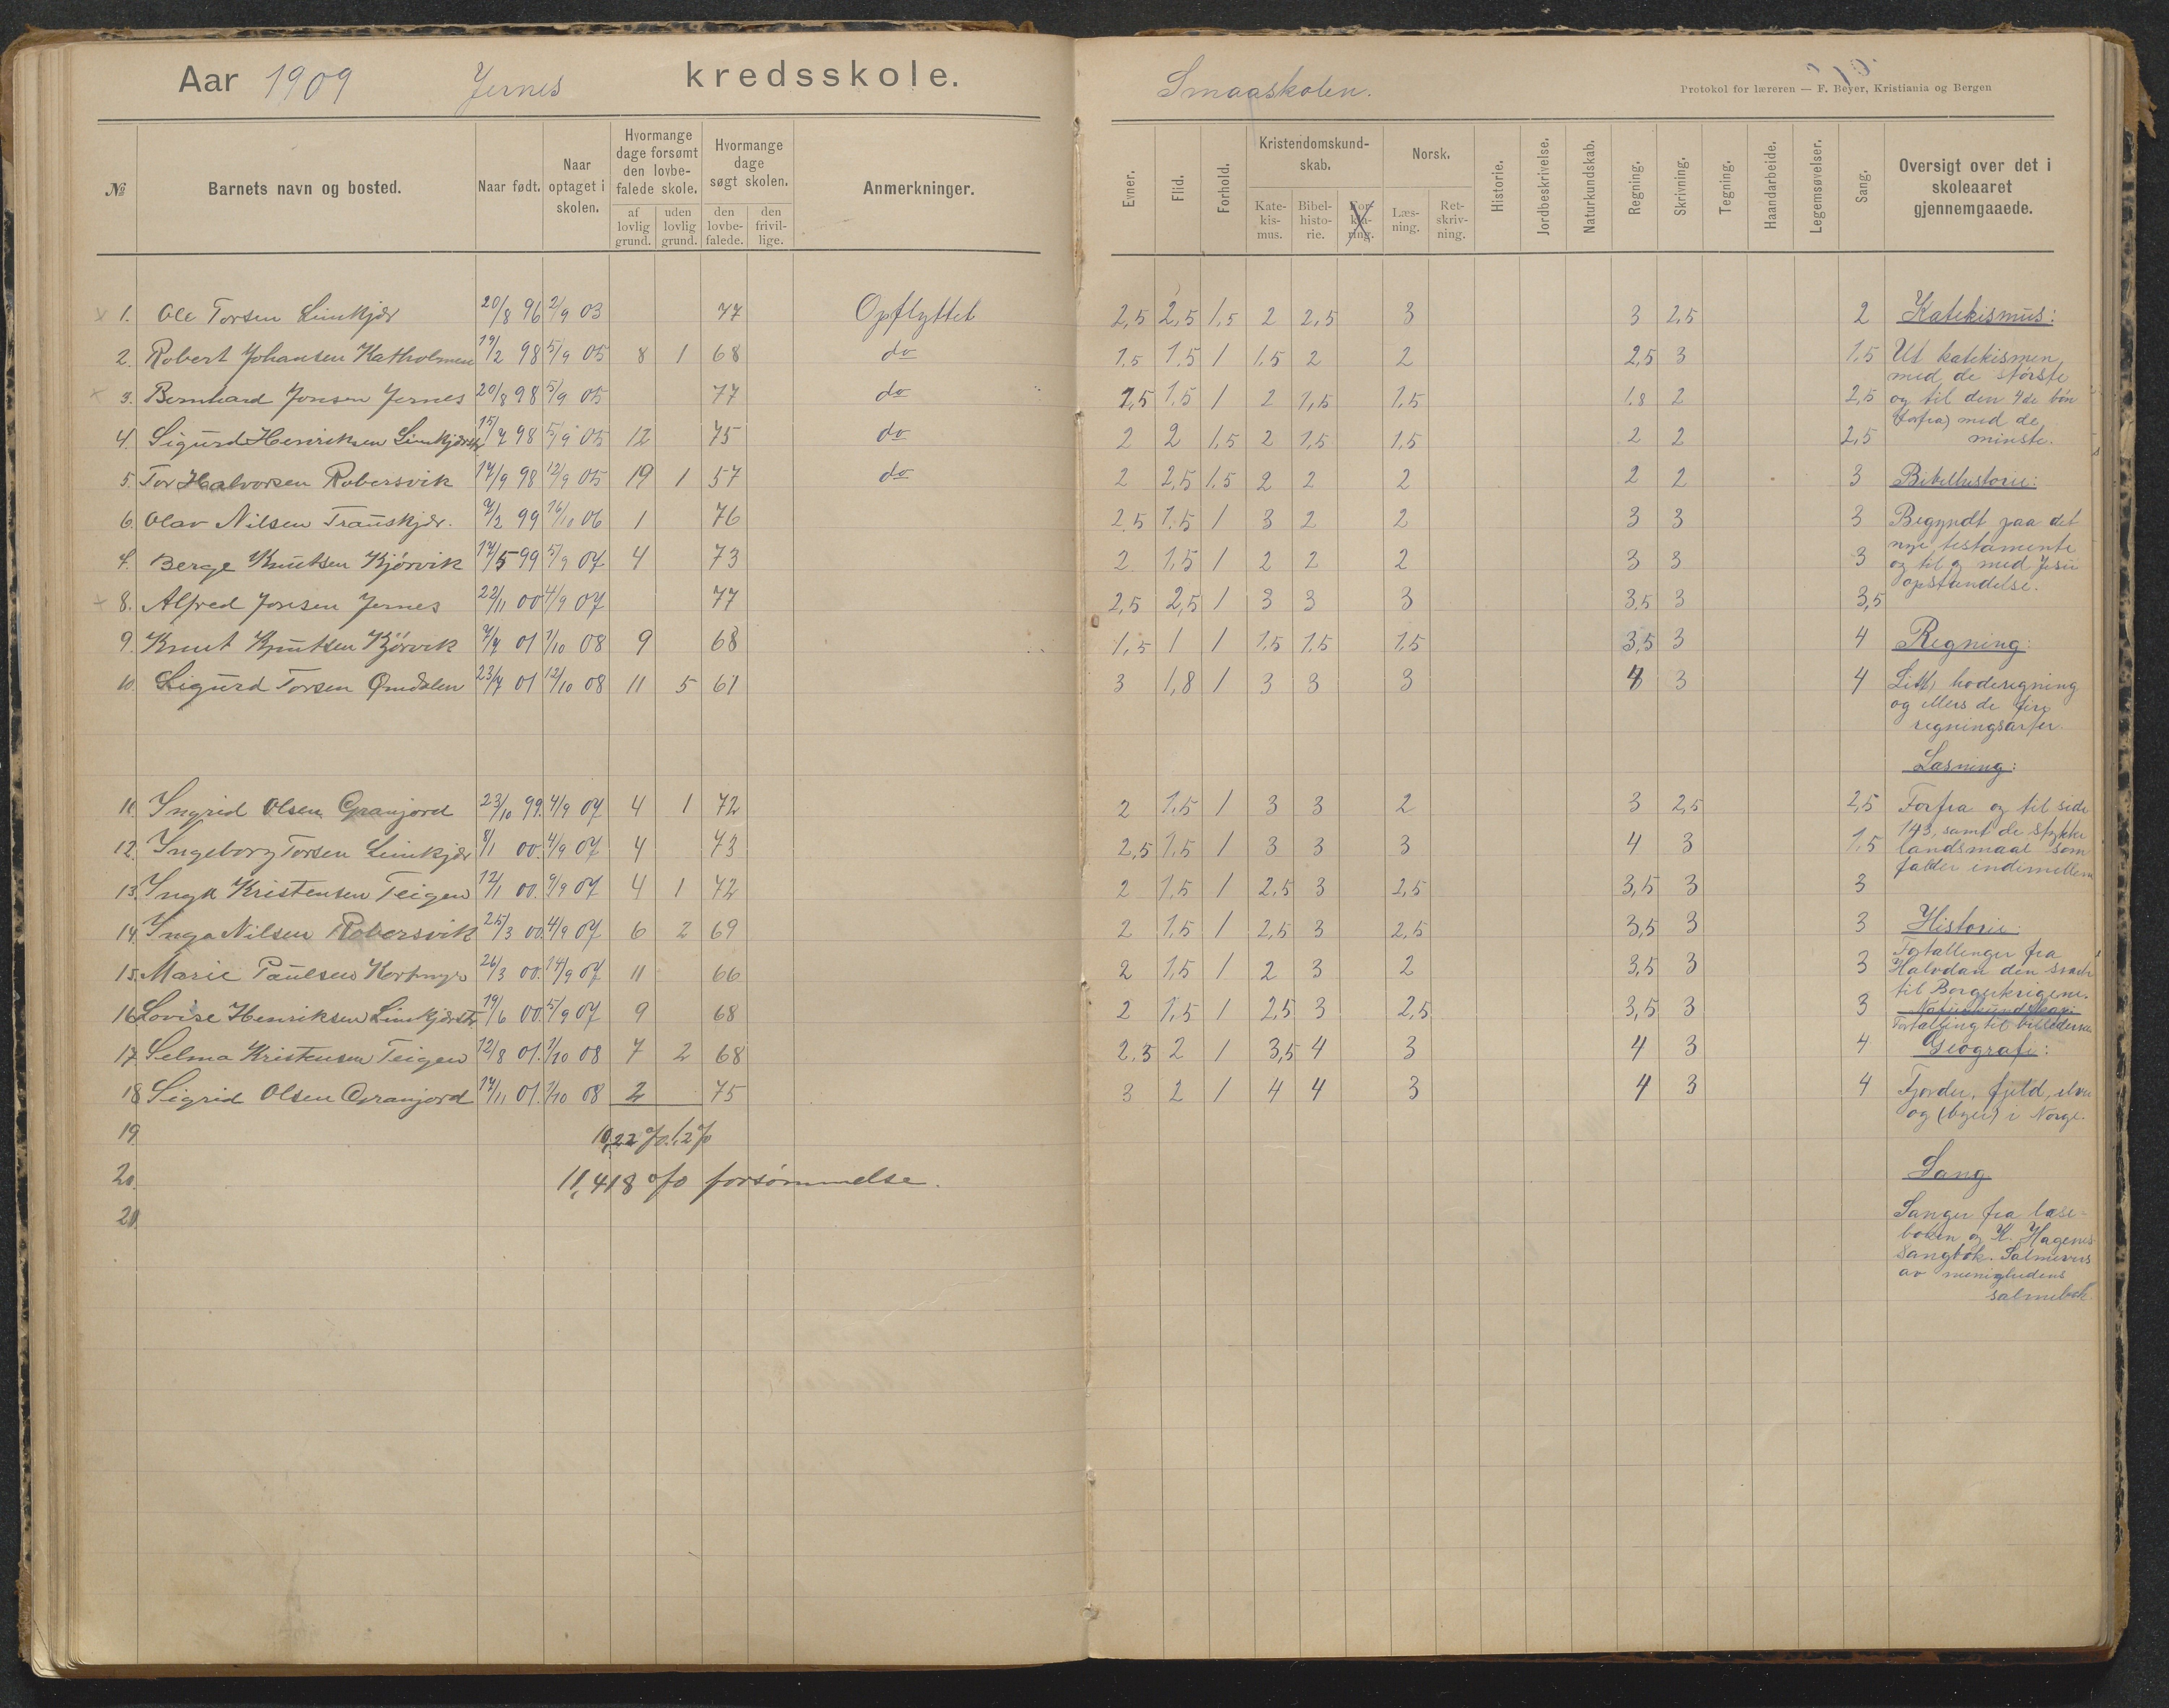 Aar 1909 Jernes kredsskole.
№ Barnets navn og bosted. Naar født. Naar optaget i skolen. Hvormange dage forsømt den lovbefalede skole. af lovlig grund. uden lovlig grund. Hvormange dage søgt skolen. den lovbefalede. den frivillige. Anmerkninger.
1. Ole Torsen Linkjær 20/8 96 2/9 03 77 Opflyttet
2. Robert Johansen Katholmen 19/2 98 5/9 05 8 1 68 do
3. Bernhard Jonsen Jernes 20/8 98 5/9 05 77 do
4. Sigurd Henriksen 15/7 98 5/9 05 12 75 do
5. Tor Halvorsen Robersvik 17/9 98 12/9 05 19 1 57 do
6. Olav Nilsen Transkjær. 7/2 99 16/10 06 1 76
7. Berge Knutsen Kjørvik 17/5 99 5/9 07 4 73
8. Alfred Jonsen Jernes 22/11 00 4/9 07 77
9. Knut Knutsen Kjørvik 7/7 01 1/10 08 9 68
10. Sigurd Torsen Omdalen 23/7 01 12/10 08 11 5 61
11. Ingrid Olsen Granjord 23/10 99. 4/9 07 4 1 72
12. Ingeborg Torsen Linkjær 8/1 00. 4/9 07 4 73
13. Inga Kristensen Teigen 12/1 00. 9/9 07 4 1 72
14. Inga Nilsen Robersvik 25/3 00. 4/9 07 6 2 69
15. Marie Paulsen Kortmyr 26/3 00. 14/9 07 11 66
16. Lovise Henriksen 19/6 00. 5/9 07 9 68
17. Selma Kristensen Teigen 12/8 01. 1/10 08 7 2 68
18. Sigrid Olsen Granjord 17/11 01. 1/10 08 2 75
19. 10,22 %. 1,2 %
20. 11,418 % forsømmelse.
20.
Smaaskolen.
Protokol for læreren — F. Beyer, Kristiania og Bergen
Evner. Flid. Forhold. Kristendomskundskab. Katekismus. Bibelhistorie. Forklaring. Norsk. Læsning. Retskrivning. Historie. Jordbeskrivelse. Naturkundskab. Regning. Skrivning. Tegning. Haandarbeide. Legemsøvelser. Sang. Oversigt over det i skoleaaret gjennemgaaede.
2,5 2,5 1,5 2 2,5 3 3 2,5 2 Katekismus:
1,5 1,5 1 1,5 2 2 2,5 3 1,5 Ut katekismen
med de største
1,5 1,5 1 2 1,5 1,5 1,8 2 2,5 og til den 4de bøn
(forfra) med de
2 2 1,5 2 1,5 1,5 2 2 2,5 minste.
2 2,5 1,5 2 2 2 2 2 3 Bibelhistorie:
2,5 1,5 1 3 2 2 3 3 3 Begyndt paa det
nye testamente
2 1,5 1 2 2 2 3 3 3 og til og med Jesu
opstandelse.
2,5 2,5 1 3 3 3 3,5 3 3,5
1,5 1 1 1,5 1,5 1,5 3,5 3 4 Regning:
3 1,8 1 3 3 3 4 3 4 Litt hoderegning
og ellers de fire
regningsarter.
Læsning:
2 1,5 1 3 3 2 3 2,5 2,5 Forfra og til side
143, samt de stykker
2,5 1,5 1 3 3 3 4 3 1,5 landsmaal som
falder indimellem
2 1,5 1 2,5 3 2,5 3,5 3 3
2 1,5 1 2,5 3 2,5 3,5 3 3 Historie:
Fortællinger fra
2 1,5 1 2 3 2 3,5 3 3 Halvdan den svarte
til Borgerkrigene.
2 1,5 1 2,5 3 2,5 3,5 3 3 Naturkundskap:
Fortælling til billederne
2,5 2 1 3,5 4 3 4 3 4 Geografi:
3 2 1 4 4 3 4 3 4 Fjorder, fjeld, elver
og (byer) i Norge.
Sang
Sanger fra læse-
boken og K. Hagenes
sangbok. Salmevers
av menighedens
salmebok.